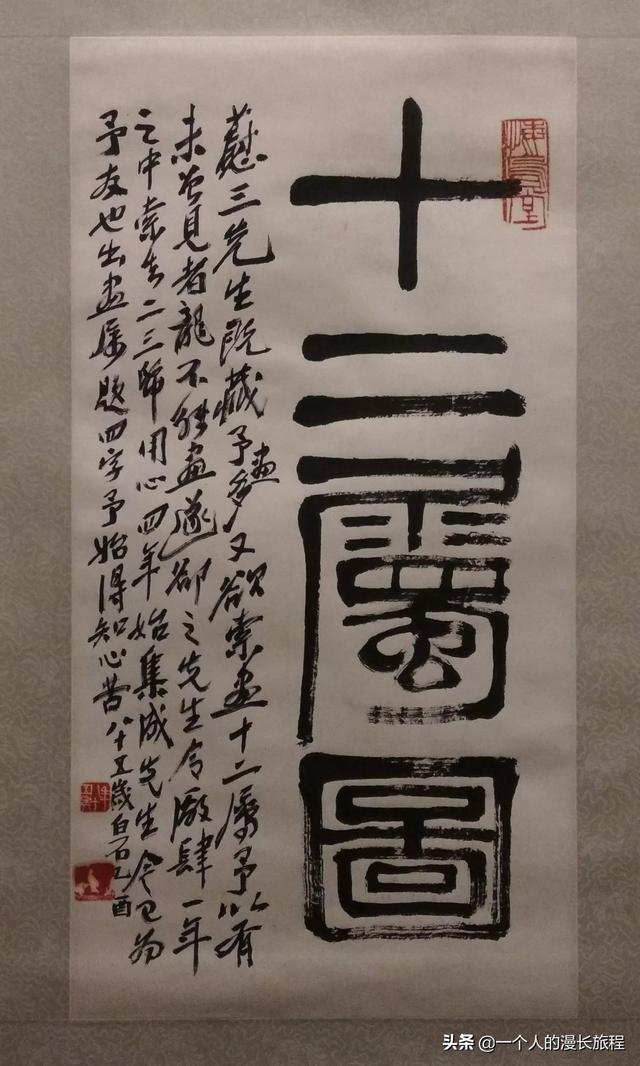 十二屬圖
悔烏堂
蔚三先生既藏予畫多又欲索畫十二属予以有
未曾見者龍不能畫遂卻之先生令廠肆一年
之中索去二三幅用心四年始集成先生今已為
予友也出畫屬題四字予始得知心苦八十五歲白石乙酉
头条 @一个人的漫长旅程